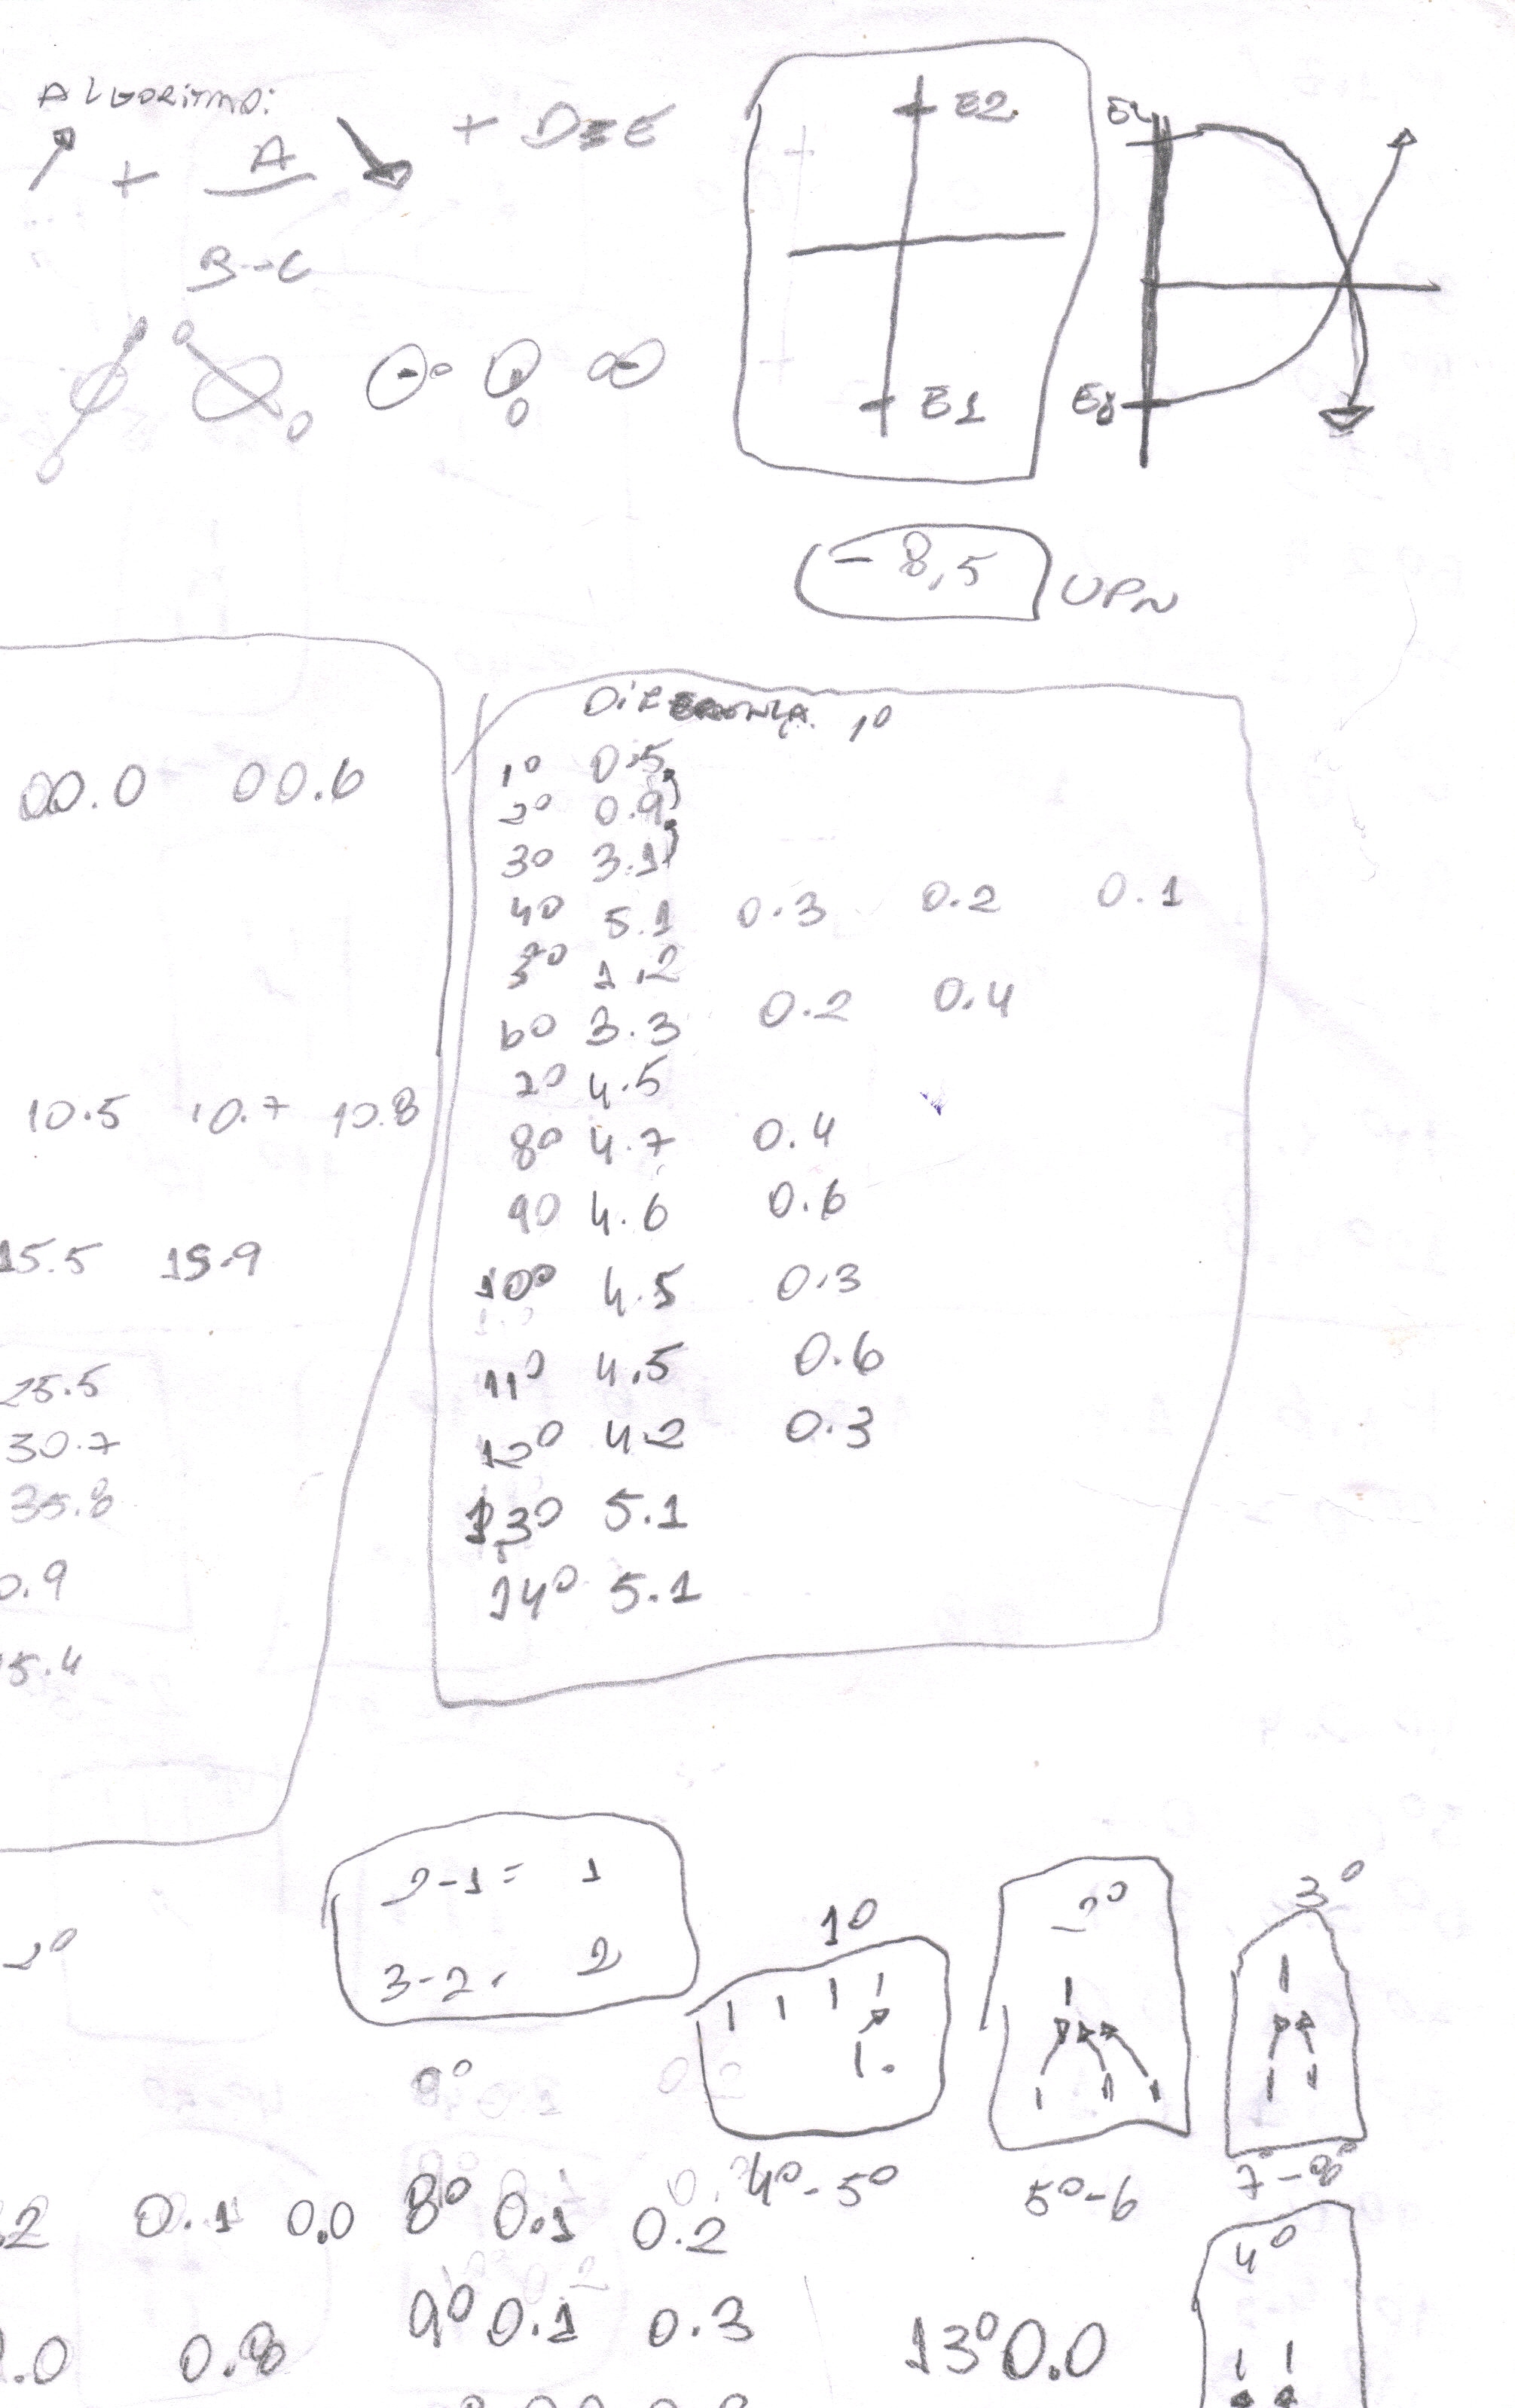 ALGORITMO:
+ A + D=E
B-C
E2
E1
- 8,5 UPN
00.0 00.6
10.5 10.7 10.8
15.5 15.9
25.5
30.7
35.8
0.9
5.4
1º
1º 0.5
2º 0.9
3º 3.1
4º 5.1 0.3 0.2 0.1
5º 1.2
6º 3.3 0.2 0.4
7º 4.5
8º 4.7 0.4
9º 4.6 0.6
10º 4.5 0.3
11º 4.5 0.6
12º 4.2 0.3
13º 5.1
14º 5.1
2-1= 1
3-2= 2
2º
1º 2º 3º
4º-5º 5º-6 7º-8º
9º
2 0.1 0.0 8º 0.1 0.2
4º
.0 0.8 9º 0.1 0.3 13º 0.0